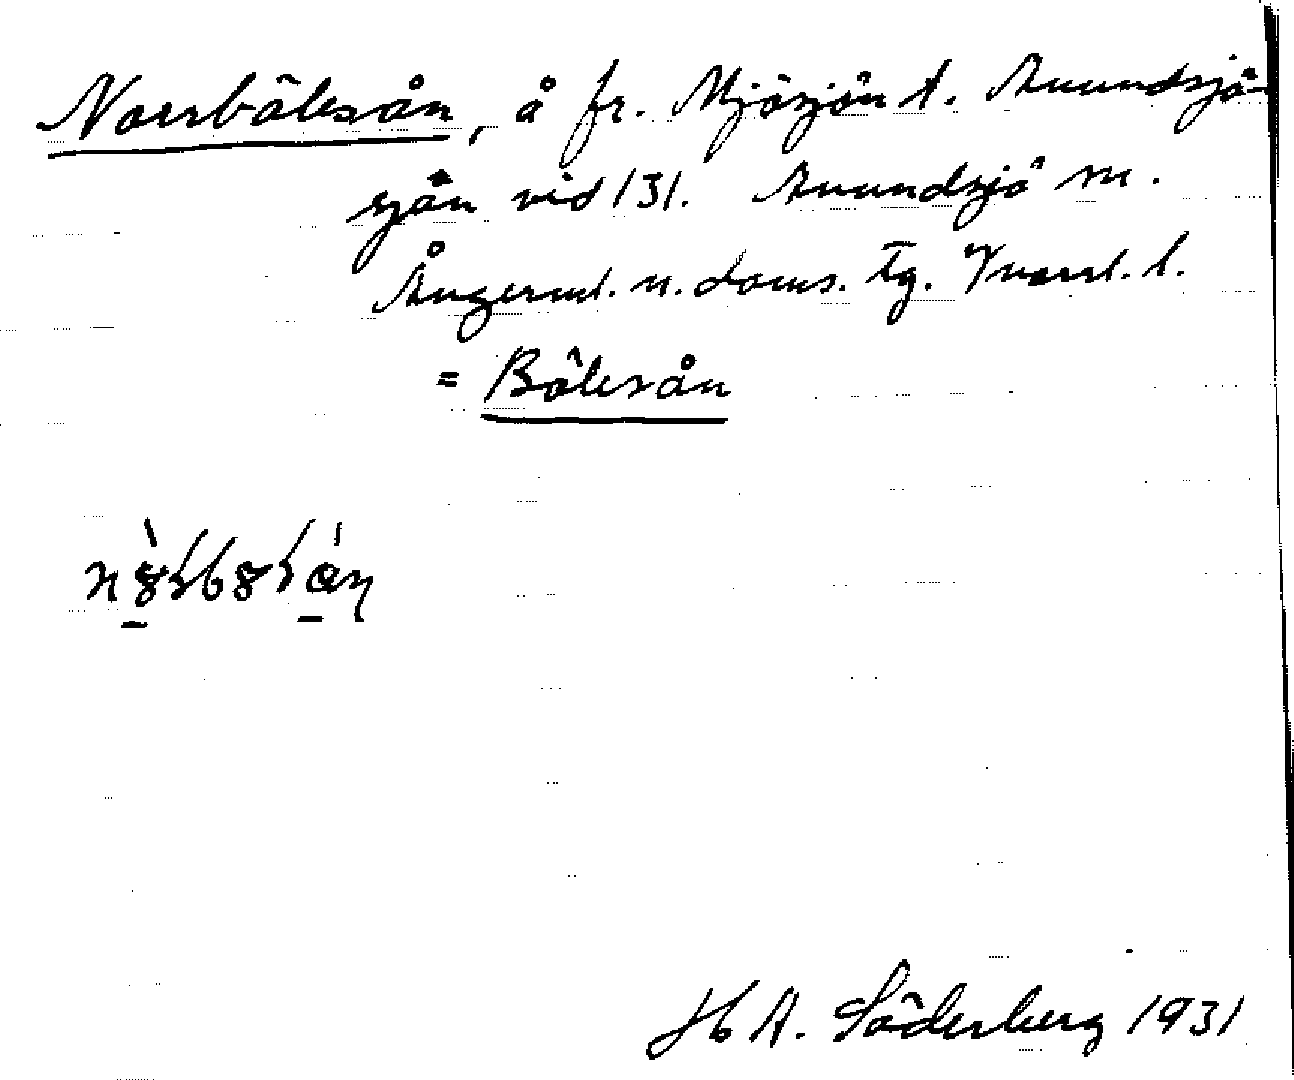 Norrbölesån, å fr. Mjösjön t. Anundsjö-
sjön vid 131. Anundsjö sn.
Ångerml. n. doms. tg. Vnorrl. l.
= Bölesån
H A. Söderberg 1931